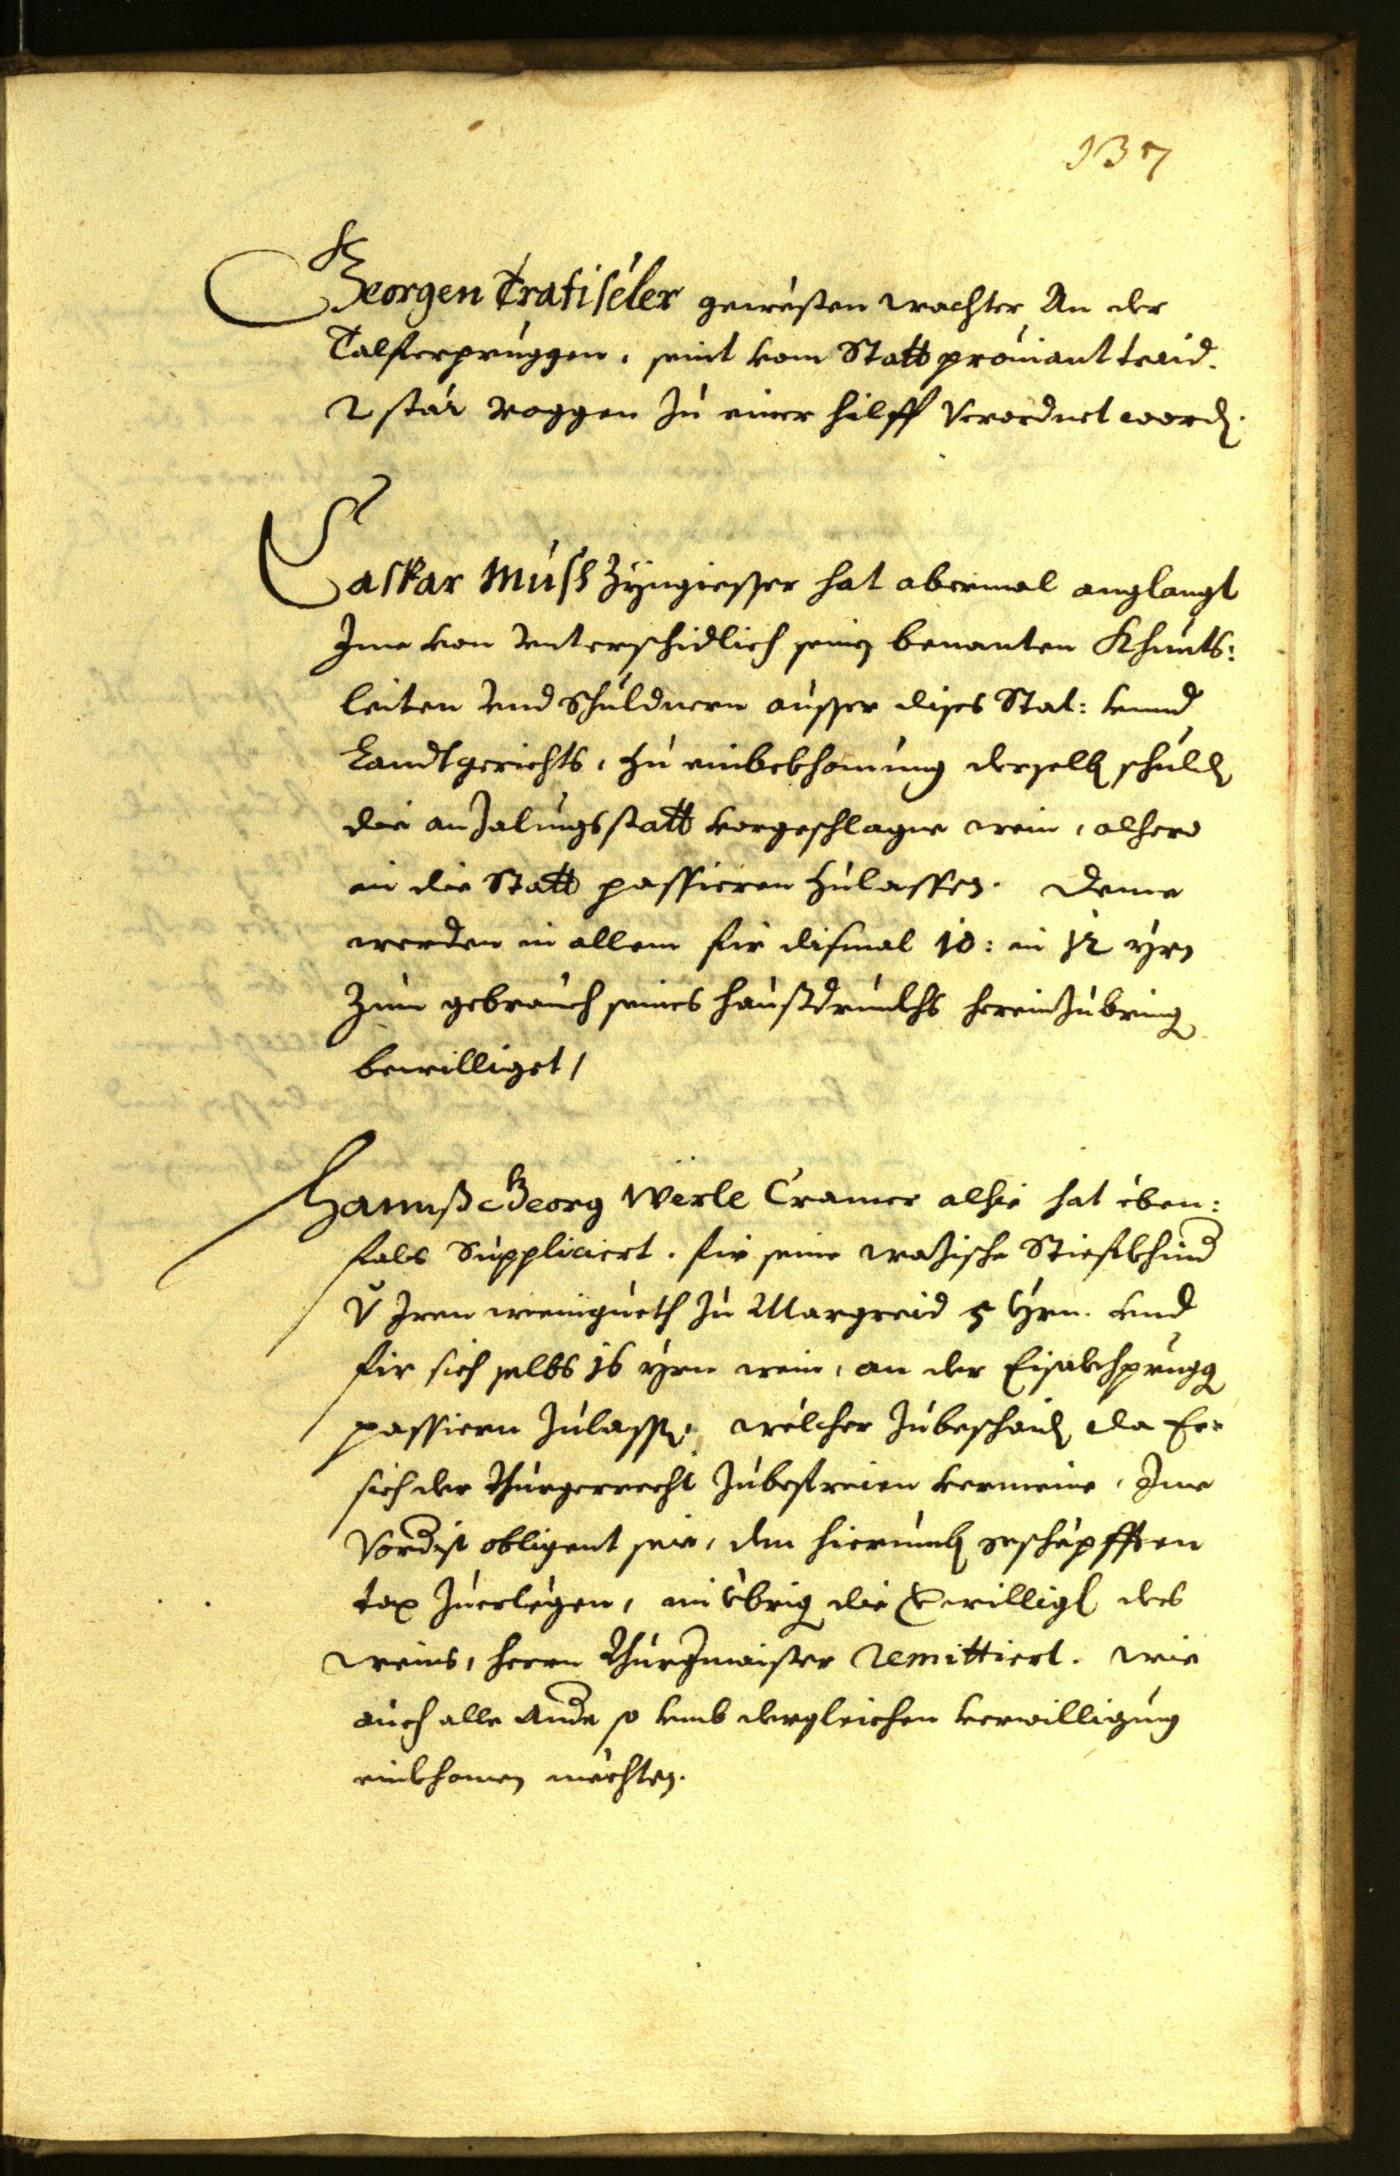 137
Georgen Trafiseler gewesten wachter An der
Talferpruggen, seint vom Statt proviant traid.
2 stär Roggen Zu einer hilff Verordnet word[en].
Caspar Muss Zyngiesser hat abermal anglangt
Ime von unterschidlich seinen benanten Khunts:
leiten und Schuldnern ausser dises Stat: unnd
Landtgerichts, zu einbekhomung derselb[en] schuld[en]
die an Zalungsstatt vorgeschlagne wein, alhero
in die Statt passieren zulassen. deme
werden in allem für dismal 10: in 12 yrn
Zum gebrauch seines haußdrunkhs hereinZubring[en]
bewilliget /
Hannß Georg Werle Cramer alhie hat eben:
fals Suppliciert. für seine Stiefkhind
Iren weingueth Zu Margreid 5 Yrn. und
für sich selbs 16 yrn wein, an der Eisakhprugg[en]
passiern Zulass[en]. welcher Zubeschaid[en] da Er
sich der Burgerrecht Zubefreien vermeine, Ime
Vordist obligent seie, den hierumb[en] geschepfften
tax Zuerlegen, im übrig[en] die Verwillig[ung] des
weins, herrn Burgmaister remittiert. wie
auch alle Ande[re] so umb dergleichen verwilligung
einkhomen mechten.